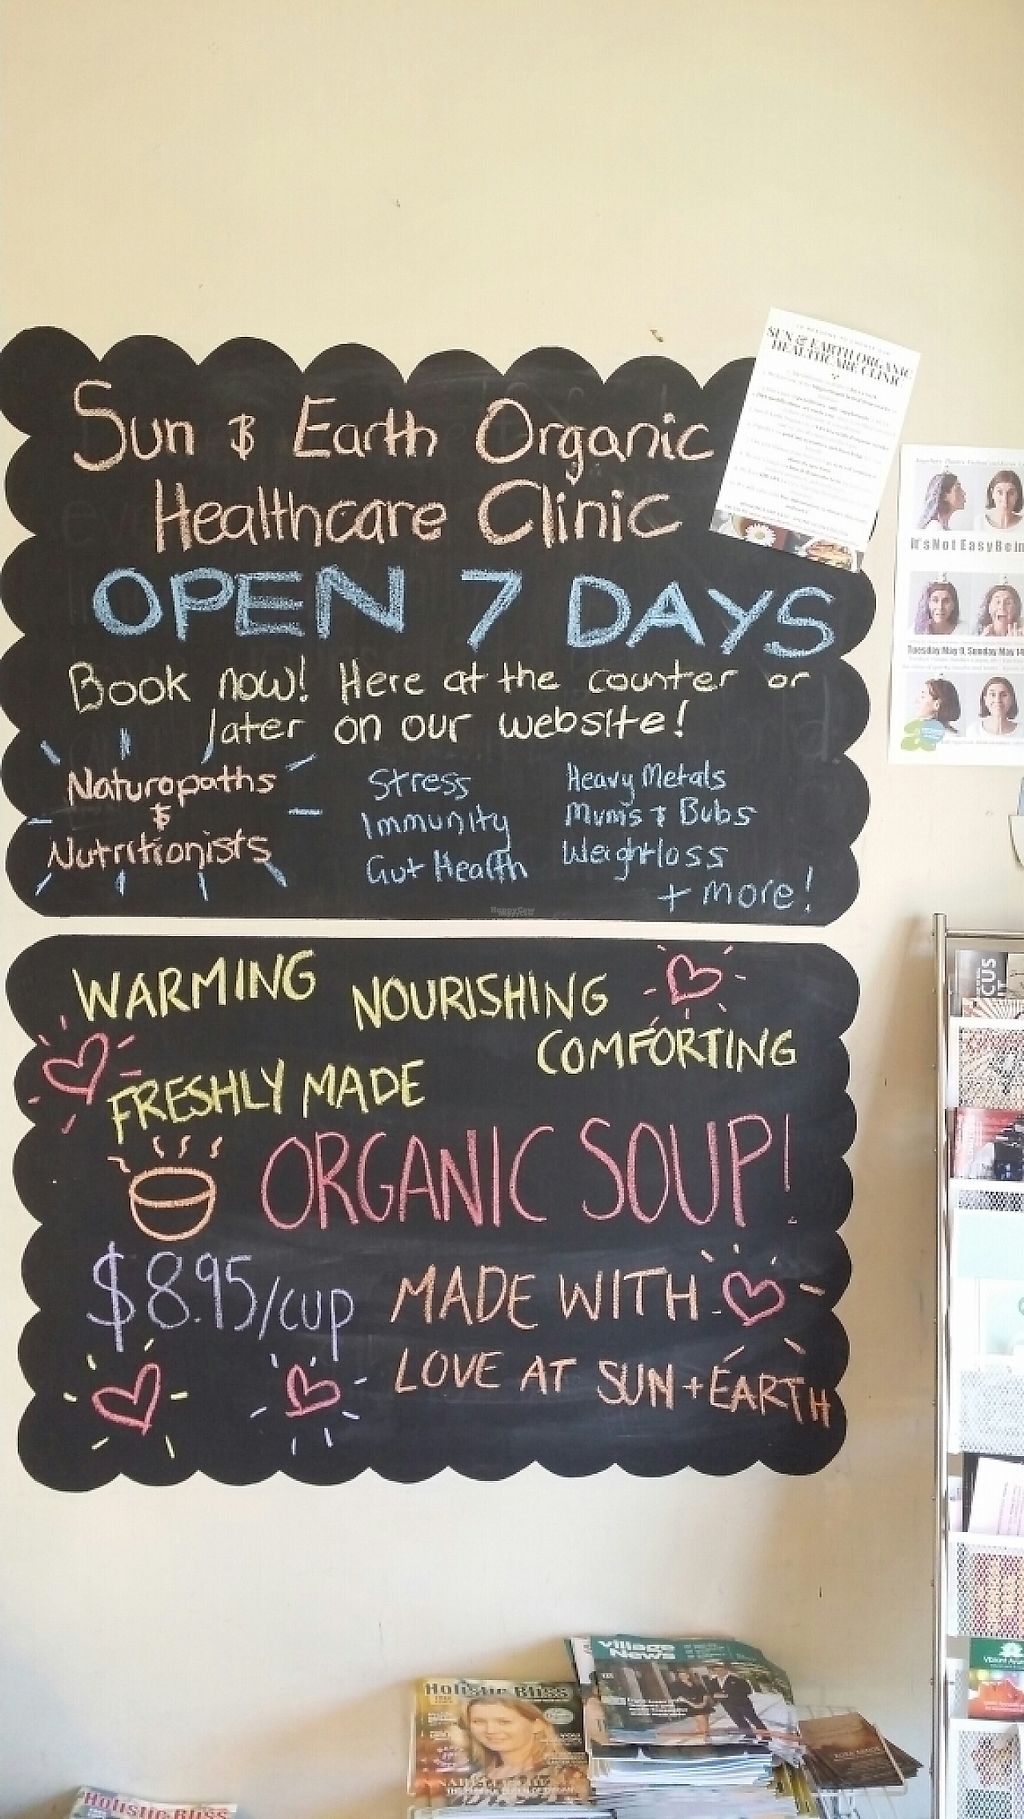 Sun & Earth Organic
Healthcare Clinic
OPEN 7 DAYS
Book now! Here at the counter or
later on our website!
Naturopaths
&
Nutritionists
Stress
Immunity
Gut Health
Heavy Metals
Mums & Bubs
Weightloss
+ more!
WARMING
NOURISHING
COMFORTING
FRESHLY MADE
ORGANIC SOUP!
$8.95/cup
MADE WITH
LOVE AT SUN + EARTH
SUN & EARTH ORGANIC
HEALTHCARE CLINIC
It's Not Easy Bein
Tuesday May 9, Sunday May 14
Village
News
Holistic Bliss
Holistic Bliss
HappyCow